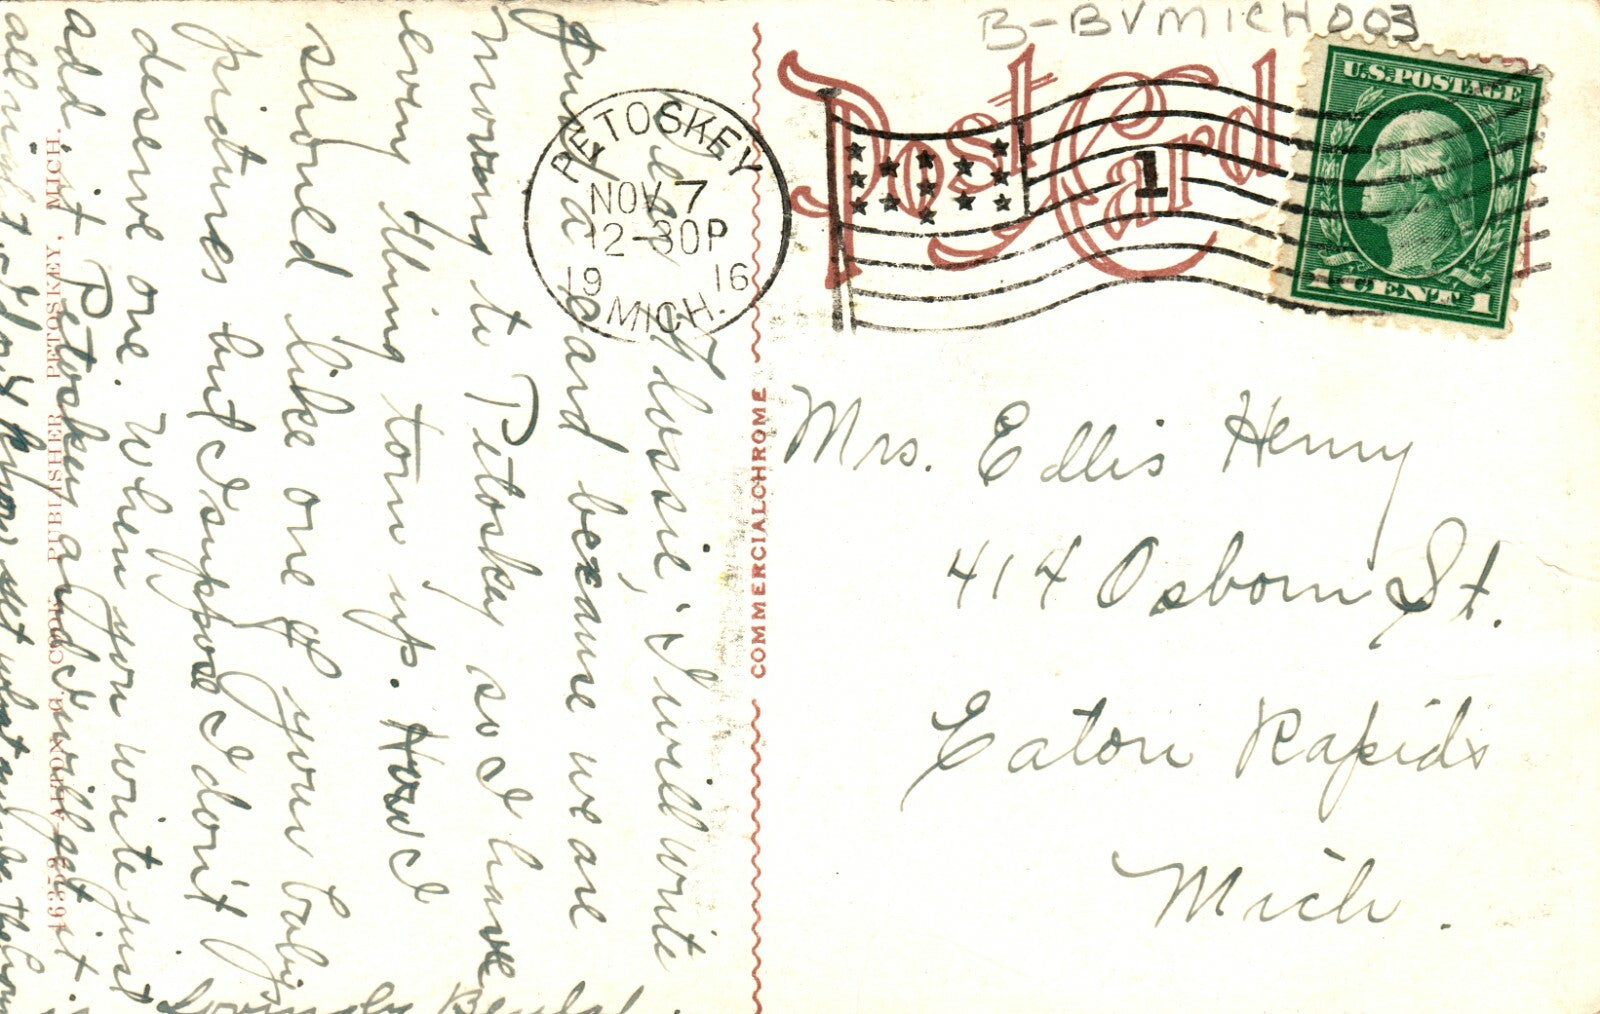 B-BVMICH003
Post Card
U.S. POSTAGE
1 CENT 1
PETOSKEY
NOV 7
12-30P
19 16
MICH.
1
Mrs. Ellis Henry
414 Osborn St.
Eaton Rapids
Mich.
COMMERCIALCHROME
Dear Flossie; I will write
just a card because we are
moving to Petoskey so I have
every thing torn up. How I
should like one of your baby
pictures but I suppose I don't
deserve one. When you write just
add it Petoskey and I will get it
allright. I don't know yet what
Lovingly
PUBLISHER PETOSKEY, MICH.